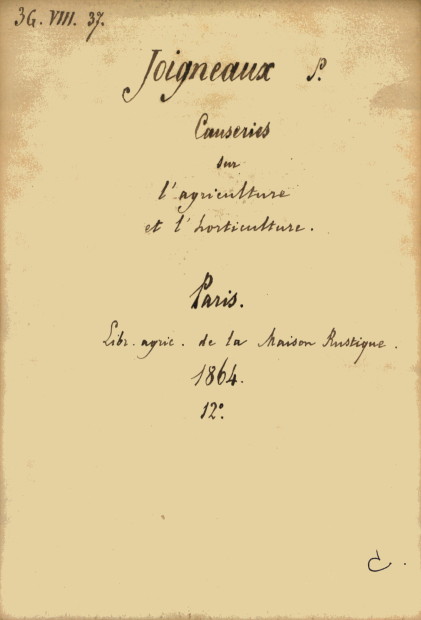 3G. VIII. 37.
Joigneaux P.
Causeries
sur
l'agriculture
et l'horticulture.
Paris.
Libr. agric. de la Maison Rustique.
1864.
12°.